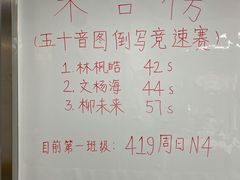 荣誉榜
(五十音图倒写竞速赛)
1. 林枫皓 42s
2. 文杨海 44s
3. 柳未来 57s
目前第一班级: 419周日N4